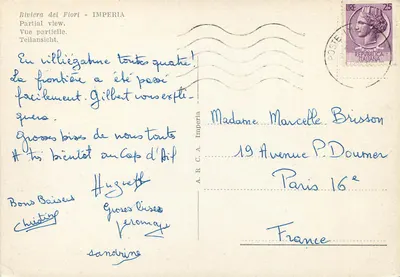 Riviera dei Fiori - IMPERIA
Partial view.
Vue partielle.
Teilansicht.
En villiégiature toutes quatre!
La frontière a été passé
facilement. Gilbert vous expli-
quera.
Grosses bises de nous toutes
A très bientôt au Cap d'Ail
Huguette
Bons Baisers
Christine
Grosses bises
sandrine
A. R. C. A. Imperia
LIRE 25
POSTE
Madame Marcelle Brisson
19 Avenue P. Doumer
Paris 16e
France